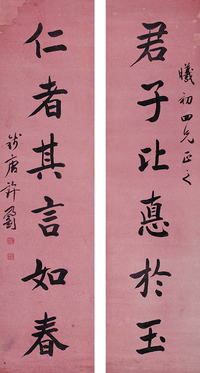 君子比惪於玉
曦初四兄正之
仁者其言如春
錢唐許